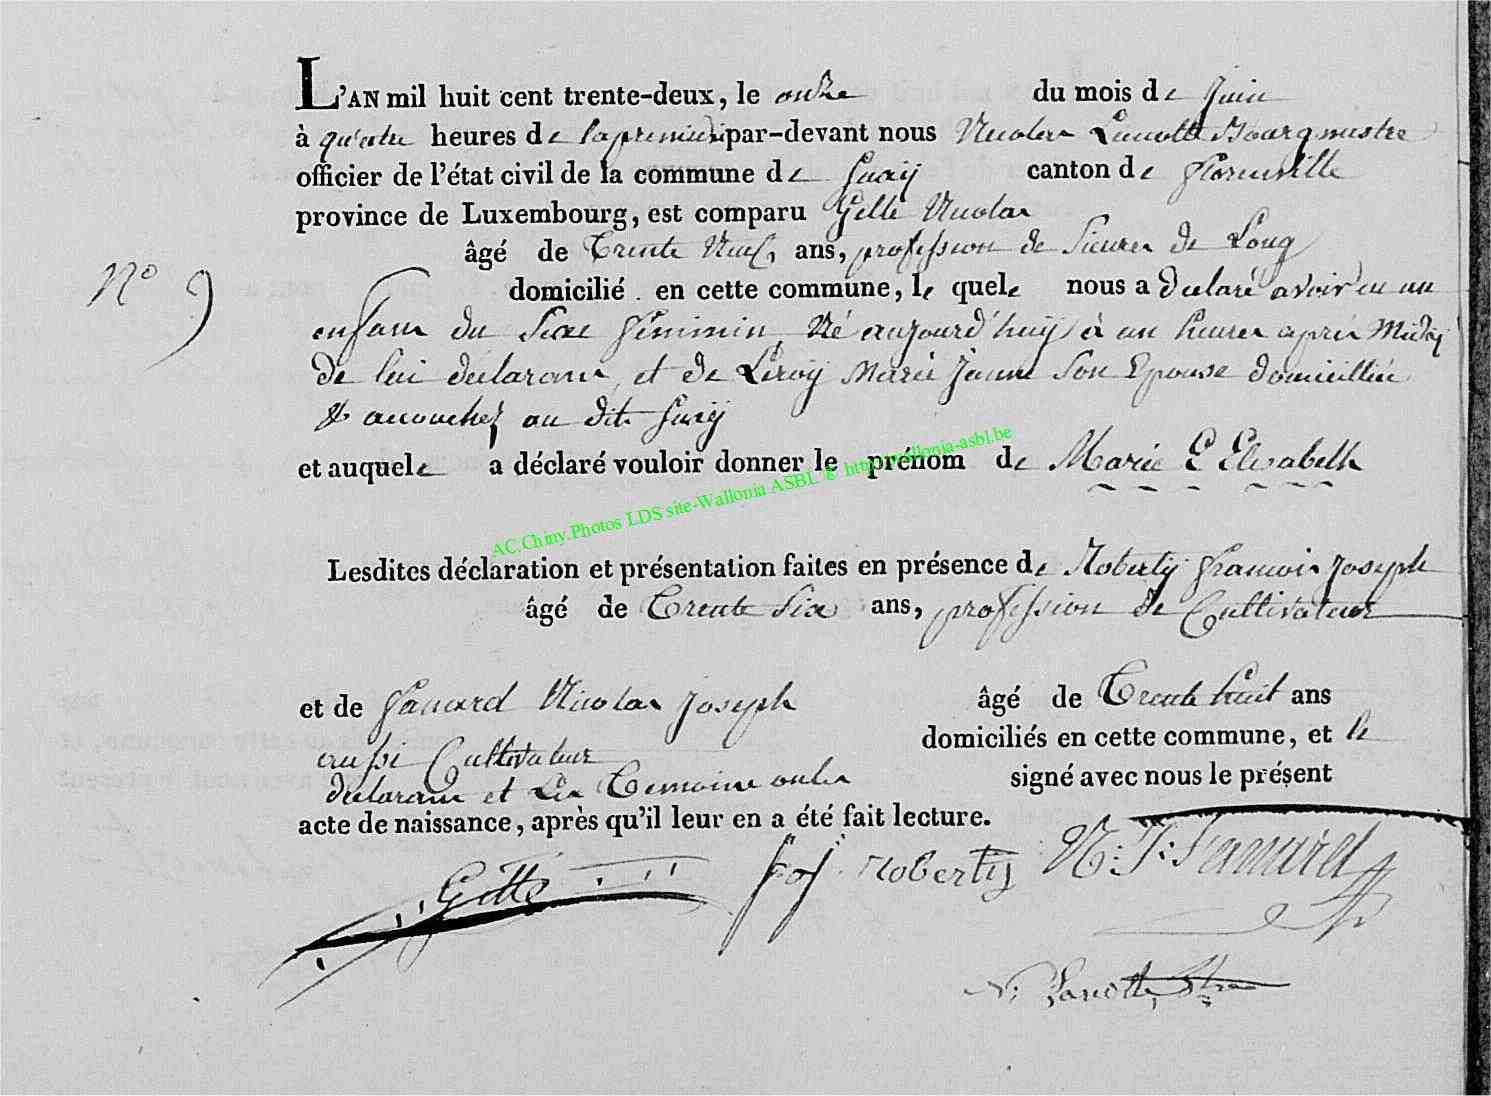 L'AN mil huit cent trente-deux, le onze du mois de Juin
à quatre heures de par-devant nous Nicolas Lanotte Bourgmestre
officier de l'état civil de la commune de Suxÿ canton de Florenville
province de Luxembourg, est comparu Gelle Nicolas
âgé de Trente Neuf ans, profession de Sieurs de Long
N° 9
domicilié en cette commune, le quele nous a déclaré avoir eu un
enfant du Sexe féminin, Né aujourd'huÿ à un heure après Midÿ
de lui déclarant, et de Leroÿ Marie Jeanne Son Epouse domiciliée
& accouchez au dit Suxÿ
et auquele a déclaré vouloir donner le prénom de Marie E Elisabeth
AC.Chiny.Photos LDS site-Wallonia ASBL © http://wallonia-asbl.be
Lesdites déclaration et présentation faites en présence de Robertÿ francois Joseph
âgé de Trente Six ans, profession de Cultivateur
et de Nicolas Joseph âgé de Trente huit ans
aussi Cultivateur domiciliés en cette commune, et le
déclarant et Les Temoins ont signé avec nous le présent
acte de naissance, après qu'il leur en a été fait lecture.
Robertÿ N: J:
N: Lanotte